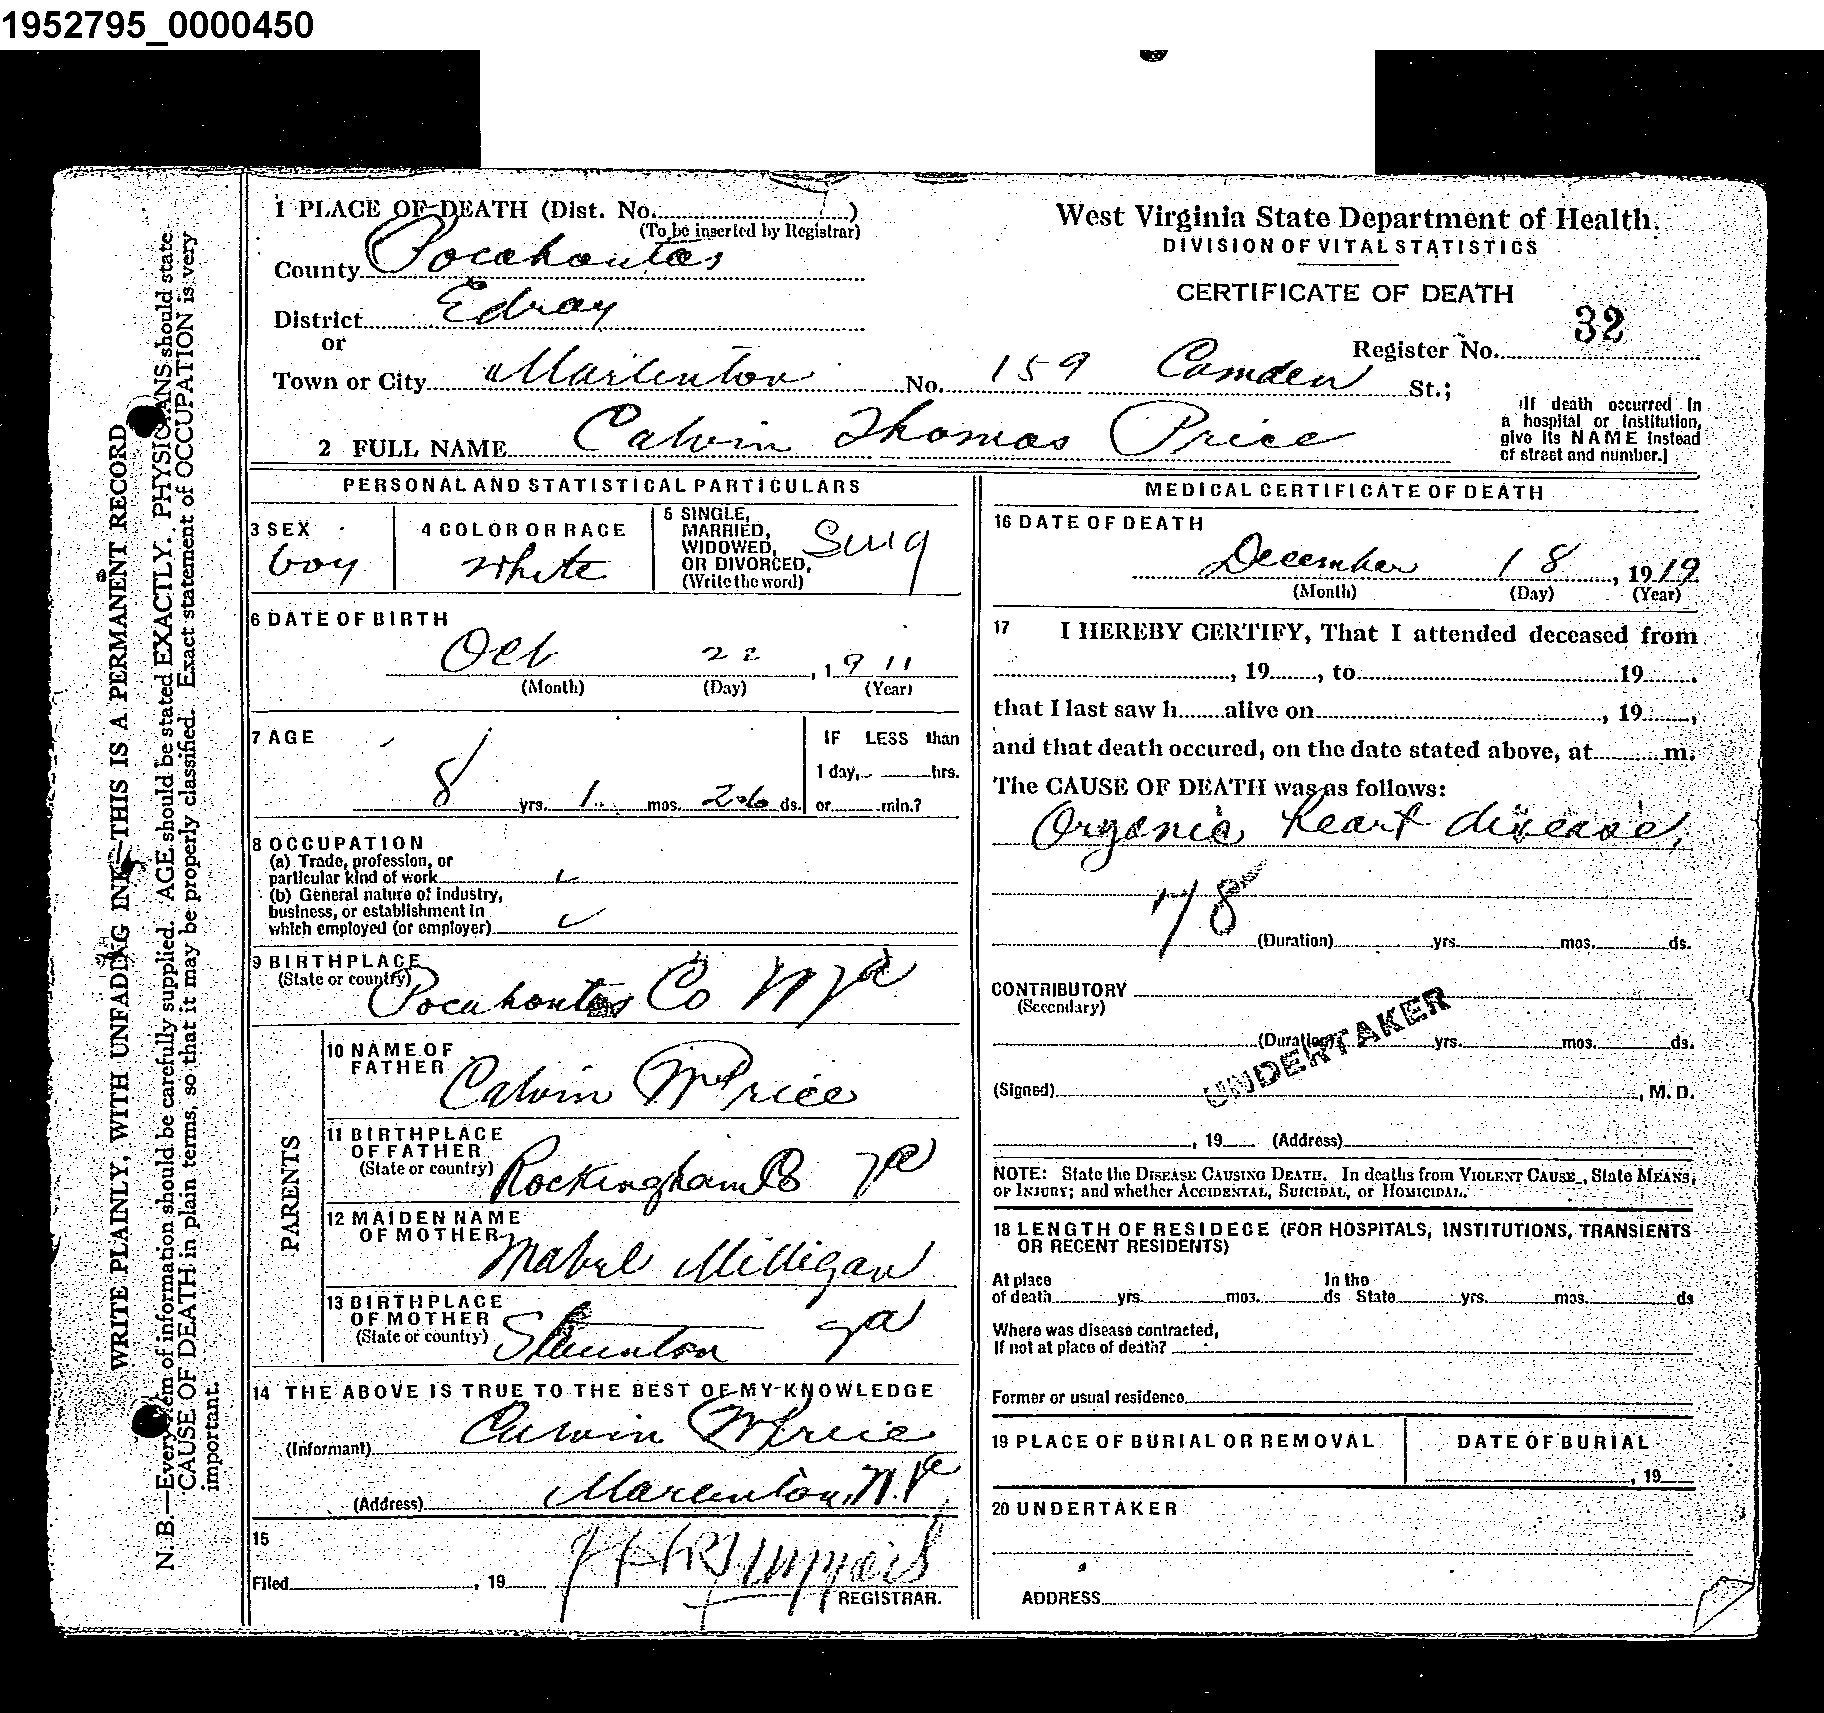 1952795_0000450
1 PLACE OF DEATH (Dist. No. )
(To be inserted by Registrar)
County Pocahontas
District Edray
or
Town or City Marlinton No. 159 Camden St.;
2 FULL NAME Calvin Thomas Price
West Virginia State Department of Health.
DIVISION OF VITAL STATISTICS
CERTIFICATE OF DEATH
32
Register No.
[If death occurred in
a hospital or institution,
give its NAME instead
of street and number.]
PERSONAL AND STATISTICAL PARTICULARS
3 SEX
boy
4 COLOR OR RACE
white
5 SINGLE,
MARRIED,
WIDOWED,
OR DIVORCED,
(Write the word)
Sing
6 DATE OF BIRTH
Oct 22, 1911
(Month) (Day) (Year)
7 AGE
8 yrs. 1 mos. 26 ds.
IF LESS than
1 day, hrs.
or min.?
8 OCCUPATION
(a) Trade, profession, or
particular kind of work
(b) General nature of industry,
business, or establishment in
which employed (or employer)
9 BIRTHPLACE
(State or country)
Pocahontas Co W Va
PARENTS
10 NAME OF
FATHER
Calvin W Price
11 BIRTHPLACE
OF FATHER
(State or country)
Rockingham Co Va
12 MAIDEN NAME
OF MOTHER
Mabel Milligan
13 BIRTHPLACE
OF MOTHER
(State or country)
Staunton Va
14 THE ABOVE IS TRUE TO THE BEST OF MY KNOWLEDGE
(Informant) Calvin W Price
(Address) Marlinton, W. Va
15
Filed , 19
REGISTRAR.
MEDICAL CERTIFICATE OF DEATH
16 DATE OF DEATH
December 18, 1919
(Month) (Day) (Year)
17 I HEREBY CERTIFY, That I attended deceased from
, 19 , to 19 .
that I last saw h alive on , 19 ,
and that death occured, on the date stated above, at m.
The CAUSE OF DEATH was as follows:
Organic heart disease,
78
(Duration) yrs. mos. ds.
CONTRIBUTORY
(Secondary)
(Duration) yrs. mos. ds.
UNDERTAKER
(Signed) , M. D.
, 19 (Address)
NOTE: State the DISEASE CAUSING DEATH. In deaths from VIOLENT CAUSE, State MEANS,
OF INJURY; and whether ACCIDENTAL, SUICIDAL, or HOMICIDAL.
18 LENGTH OF RESIDECE (FOR HOSPITALS, INSTITUTIONS, TRANSIENTS
OR RECENT RESIDENTS)
At place In the
of death yrs. mos. ds State yrs. mos. ds
Where was disease contracted,
If not at place of death?
Former or usual residence
19 PLACE OF BURIAL OR REMOVAL
DATE OF BURIAL
, 19
20 UNDERTAKER
ADDRESS
WRITE PLAINLY, WITH UNFADING INK—THIS IS A PERMANENT RECORD
N. B.—Every item of information should be carefully supplied. AGE should be stated EXACTLY. PHYSICIANS should state
CAUSE OF DEATH in plain terms, so that it may be properly classified. Exact statement of OCCUPATION is very
important.